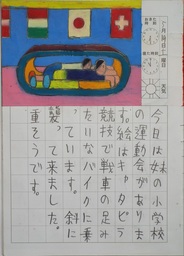 今日は妹の小学校
の運動会がありま
す。絵はキャタピラ
競技で戦車の足み
たいなバイクに乗
っています。斜に
って来ました。
重そうです。